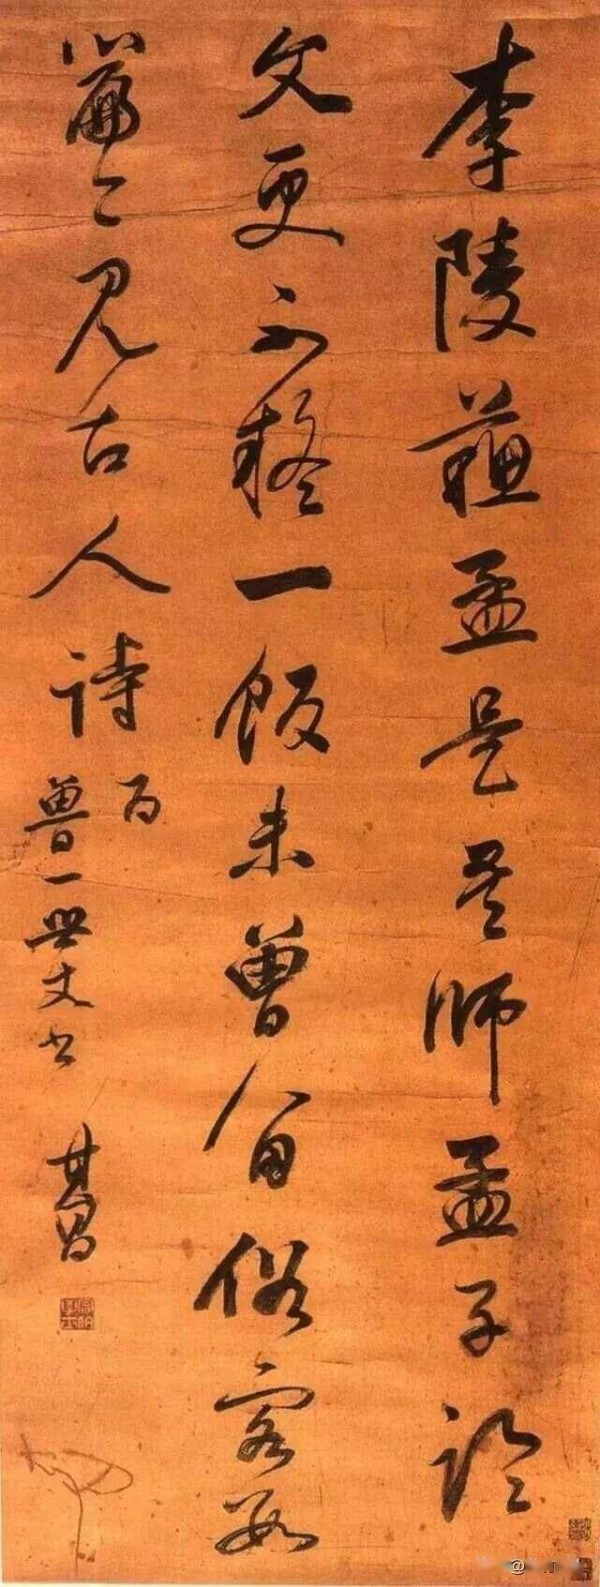 李陵蘓孟是吾師孟子論
文更不疑一飯未曾留俗客數
篇〻見古人詩
百
魯一世丈書 其昌